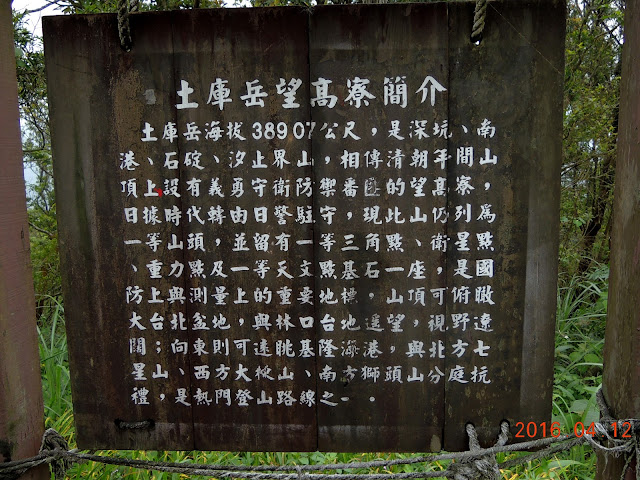 土庫岳望高寮簡介
土庫岳海拔389.07公尺，是深坑、南
港、石碇、汐止界山，相傳清朝年間，山
頂上設有義勇守衛防番，禦匪的望高寮，
日據時代韓，由日警駐守，現此山仍列為
一等山頭，並留有一等三角點、衛星點
、重力點及一等天文點基石一座，是國
防上與測量上的重要地標，山頂可俯瞰
大台北盆地，與林口台地遙望，視野遼
闊；向東則可遠眺基隆海港，與北方七
星山、西方大桫山、南方獅頭山分庭抗
禮，是熱門登山路線之一。
2016 04 12